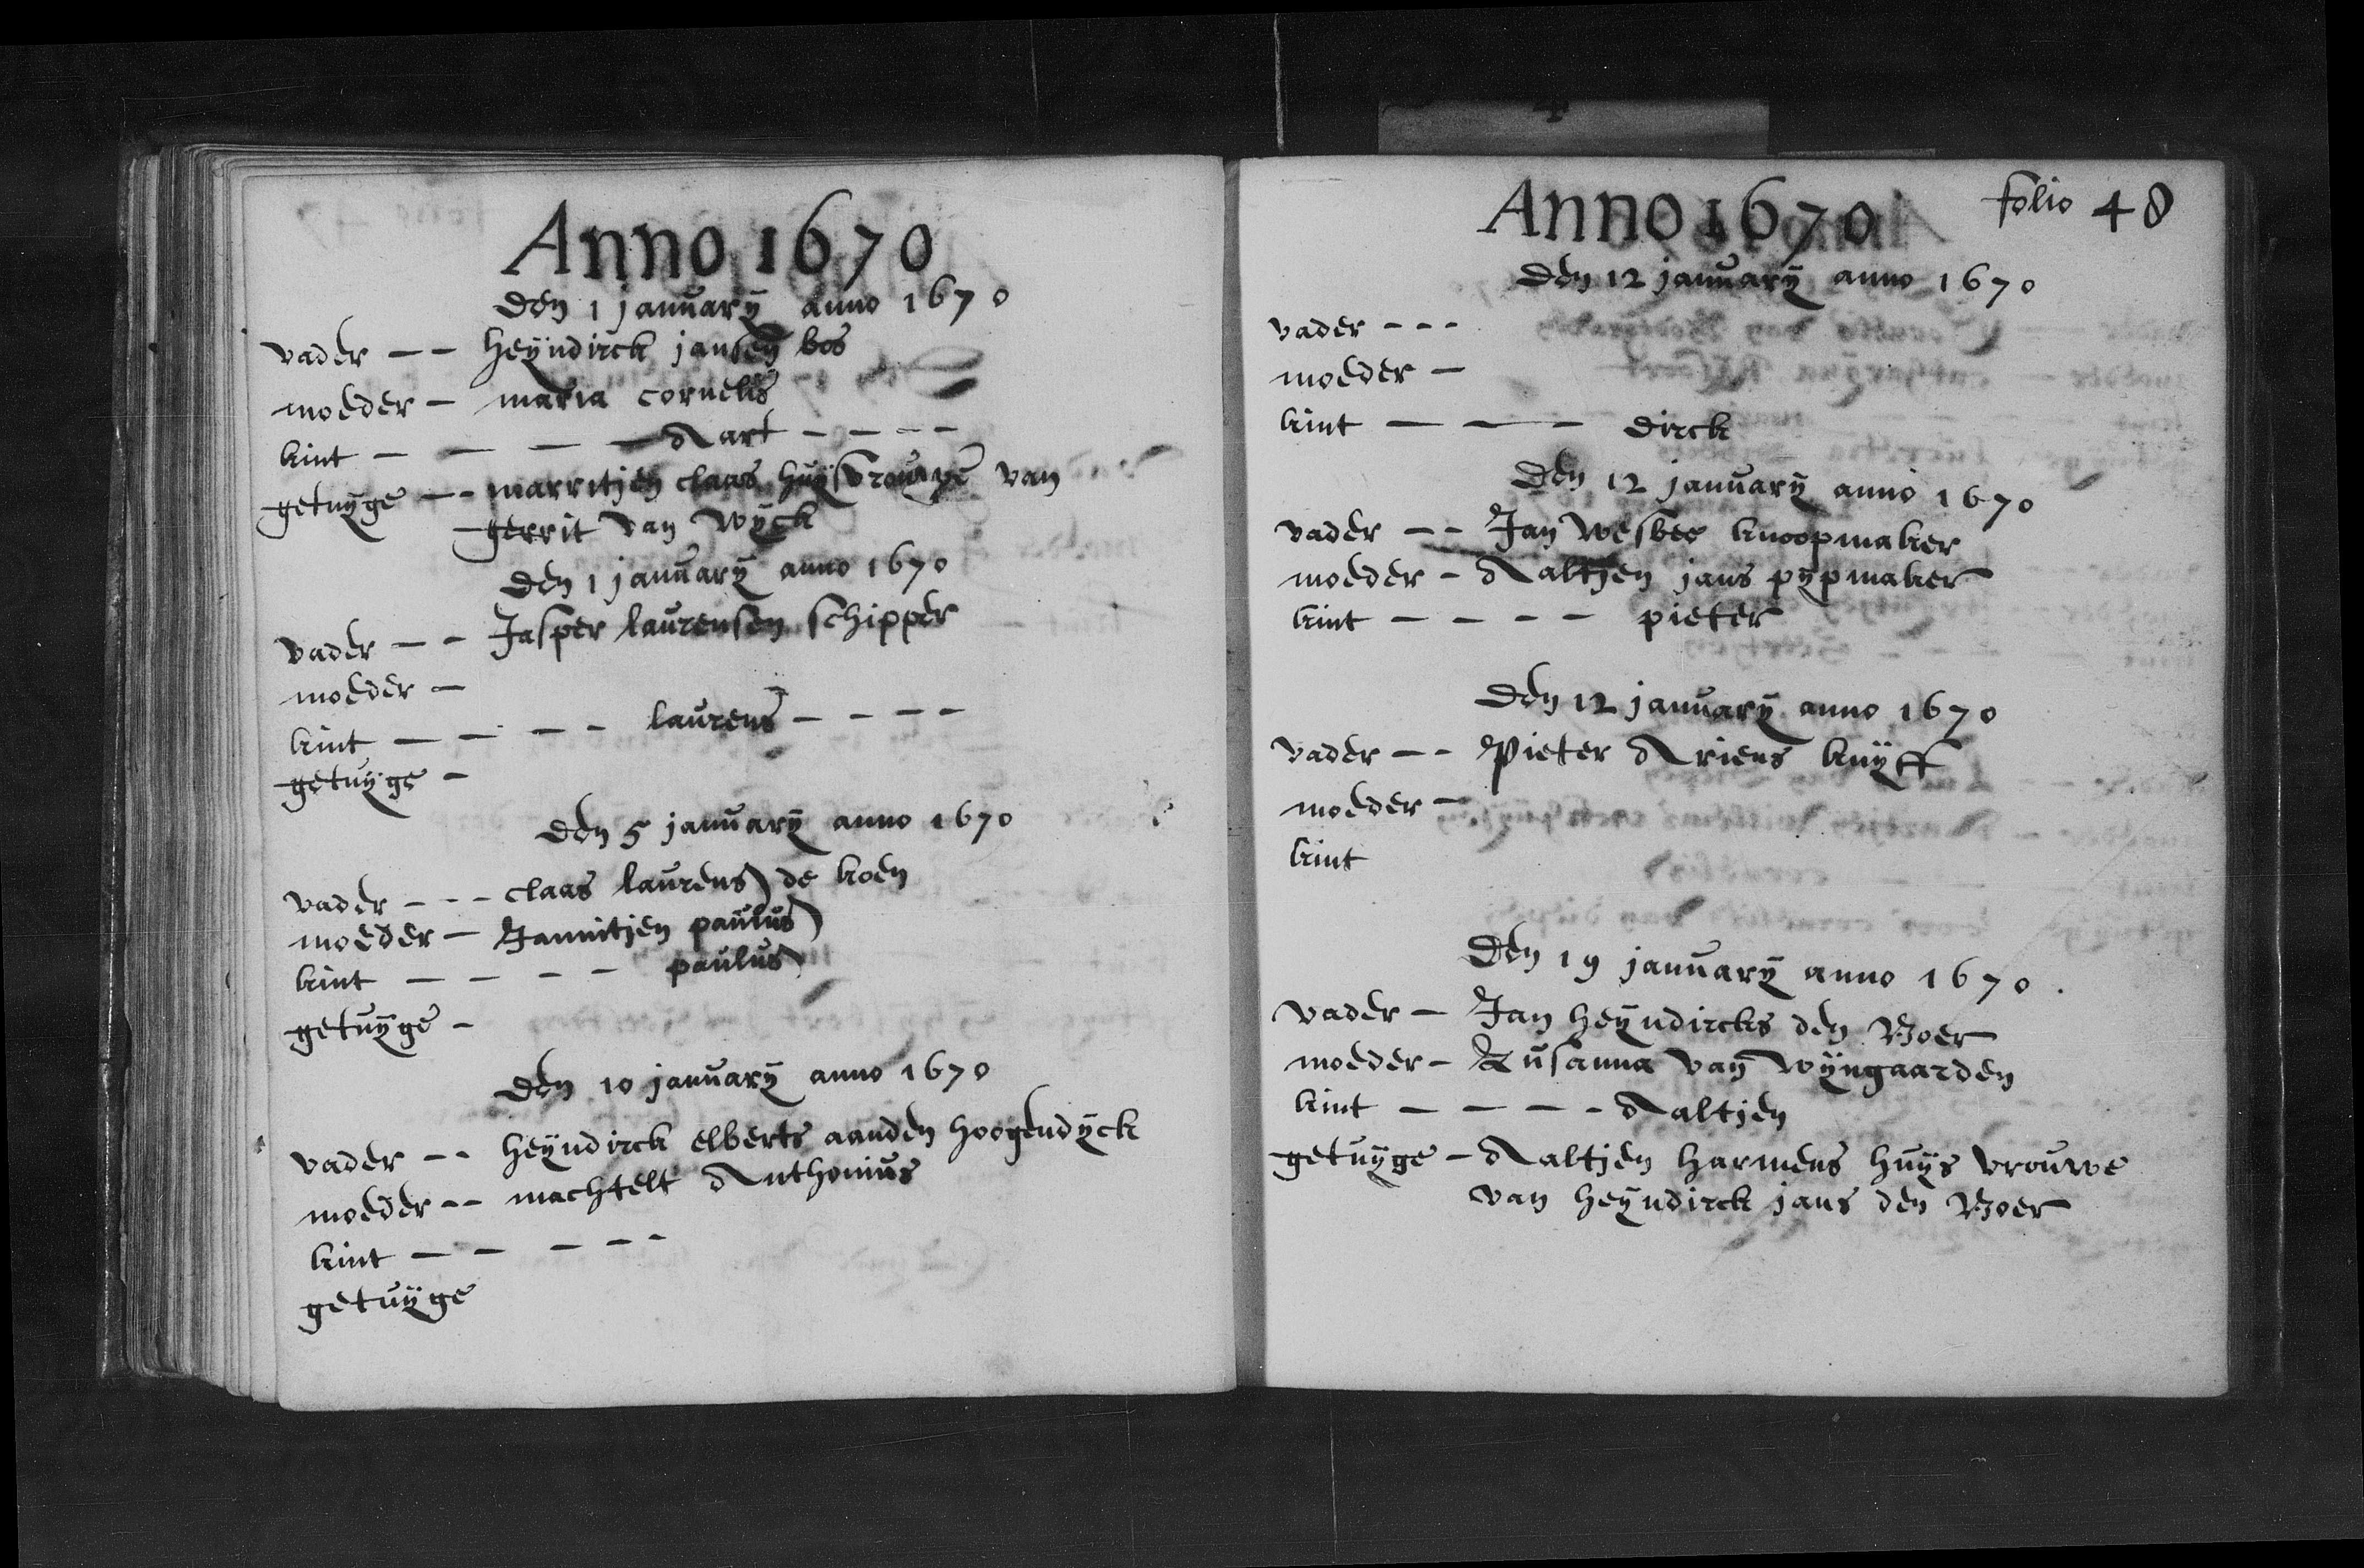 Anno 1670
den 1 januarÿ anno 1670
vader -- heÿndirck jansen bos
moeder - maria cornelis
kint - - - - Aart - - - -
getuÿge -- marritjen claas huÿsvrouwe van
gerrit van Wÿck
den 1 januarÿ anno 1670
vader -- Jasper laurensen schipper
moeder -
kint - - - - laurens - - - -
getuÿge -
den 5 januarÿ anno 1670
vader --- claas laurens de koen
moeder - Jannitjen paulus
kint - - - - paulus
getuÿge -
den 10 januarÿ anno 1670
vader -- heÿndirck elberts aanden hoogendÿck
moeder -- machtelt Anthonius
kint - - - - -
getuÿge
Anno 1670 folio 48
Den 12 januarÿ anno 1670
vader ---
moeder -
kint - - - dirck
Den 12 januarÿ anno 1670
vader -- Jan Wesbee knoopmaker
moeder - Aaltjen jans pÿpmaker
kint - - - - pieter
Den 12 januarÿ anno 1670
vader -- Pieter Ariens kuÿff
moeder -
kint
Den 19 januarÿ anno 1670.
vader - Jan heÿndircks den Boer
moeder - Susanna van Wÿngaarden
kint - - - - Aaltjen
getuÿge - Aaltjen harmens huÿs vrouwe
van heÿndirck jans den Boer